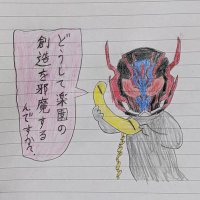 どうして楽園の
創造を邪魔する
んですか?